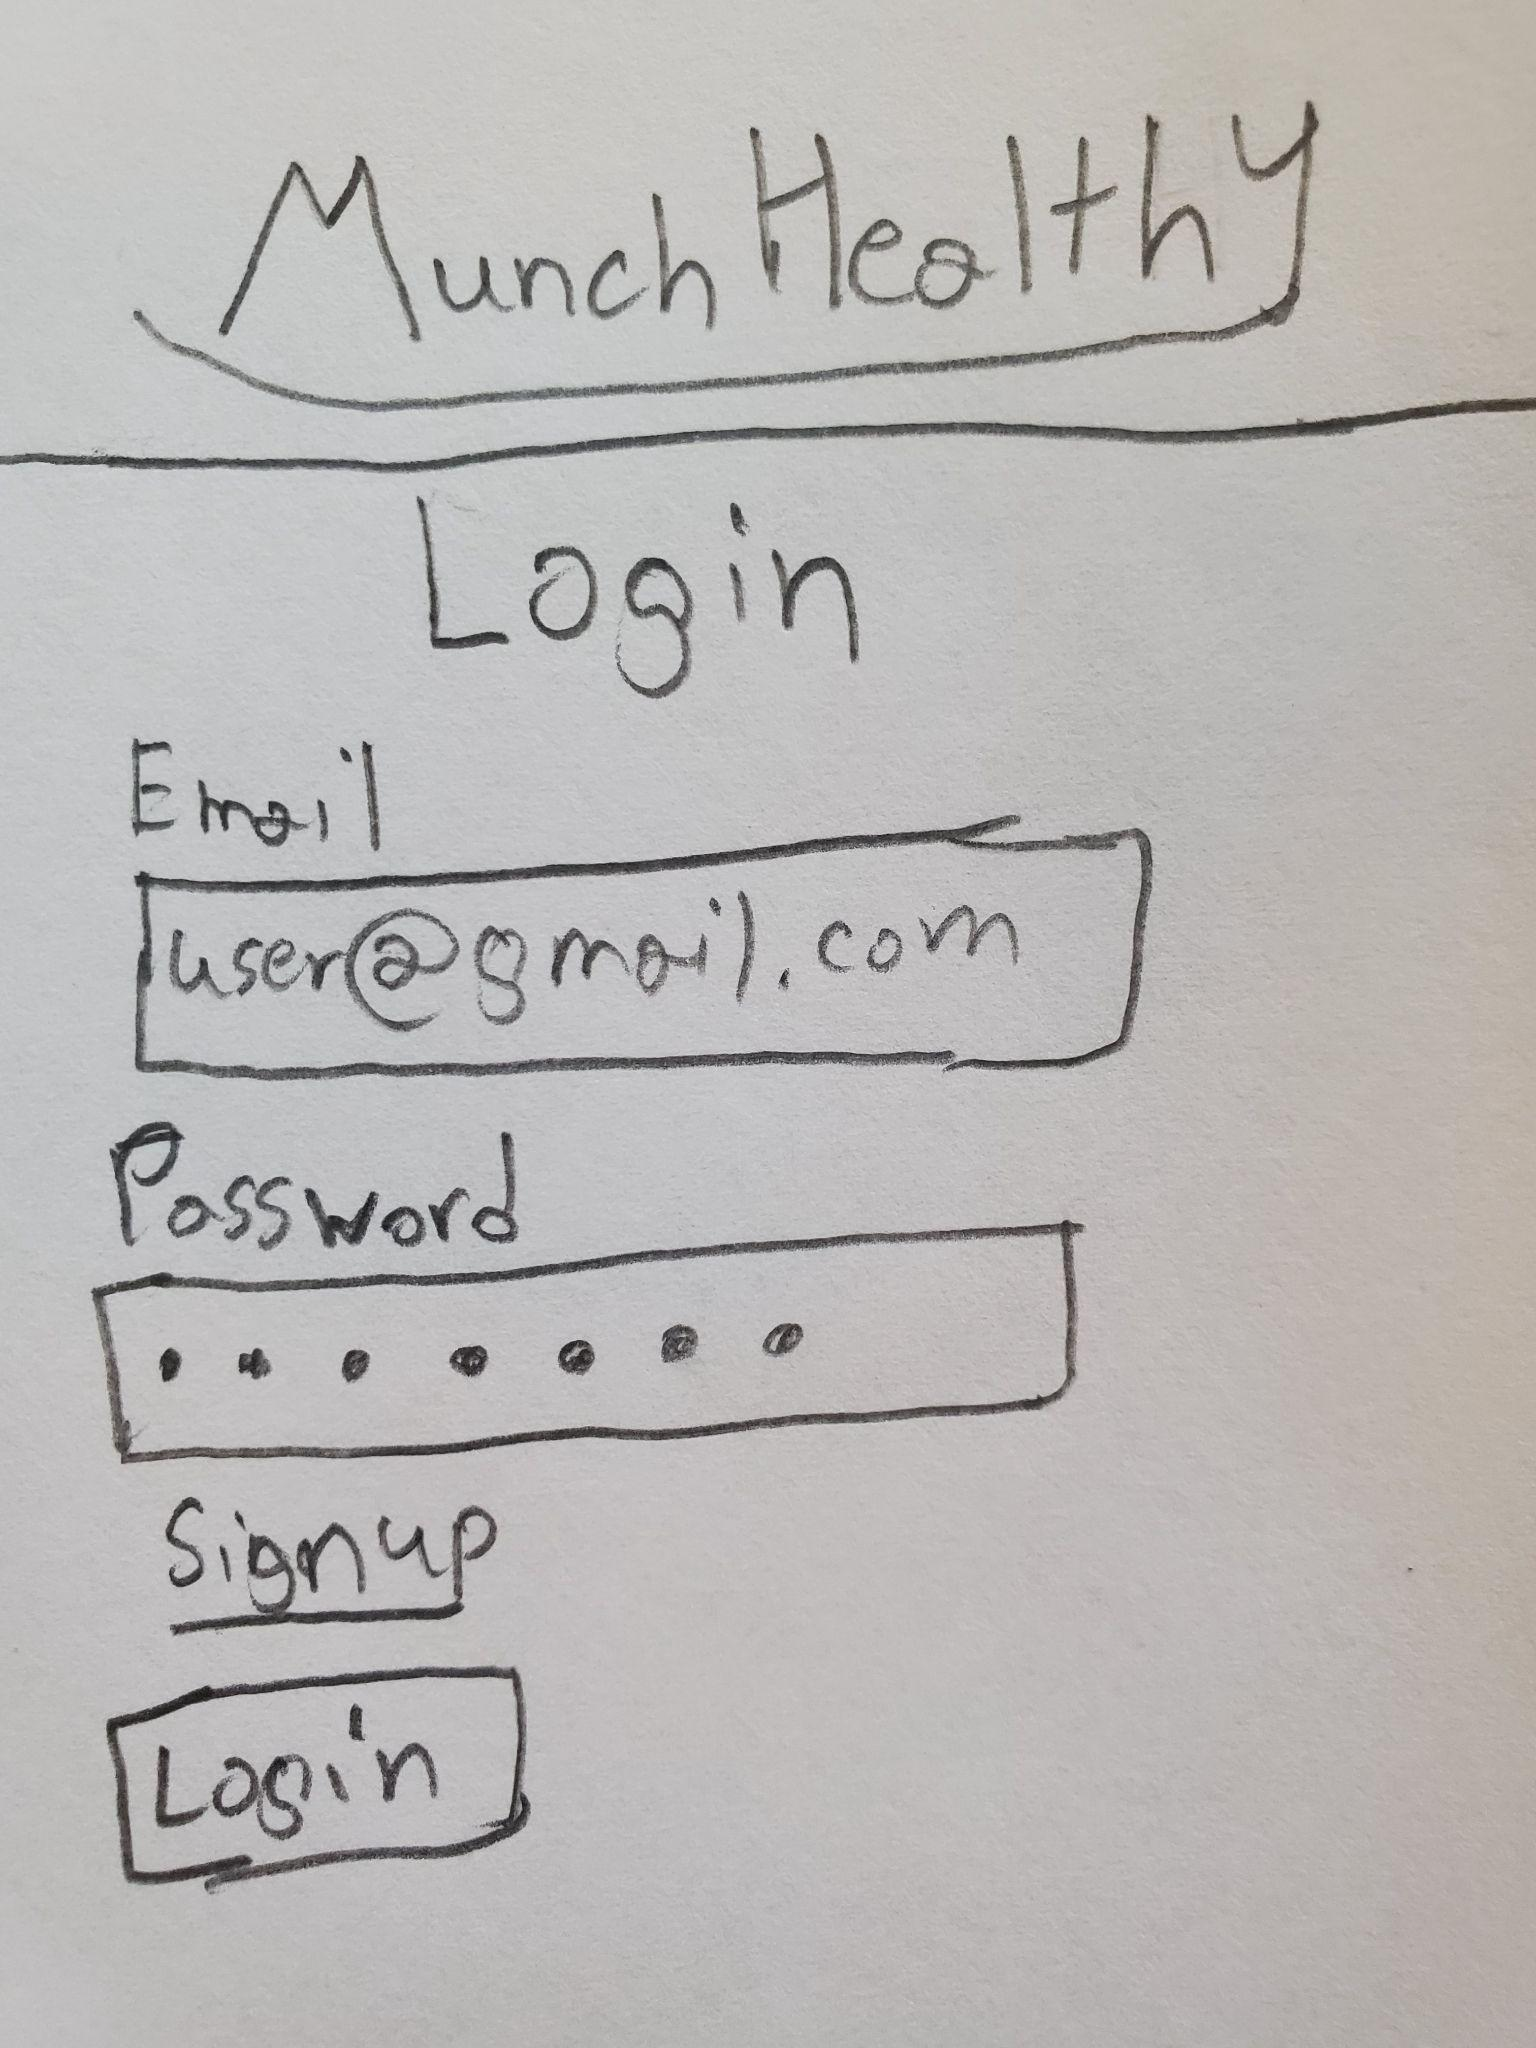 MunchHealthy
Login
Email
user@gmail.com
Password
•••••••
Signup
Login